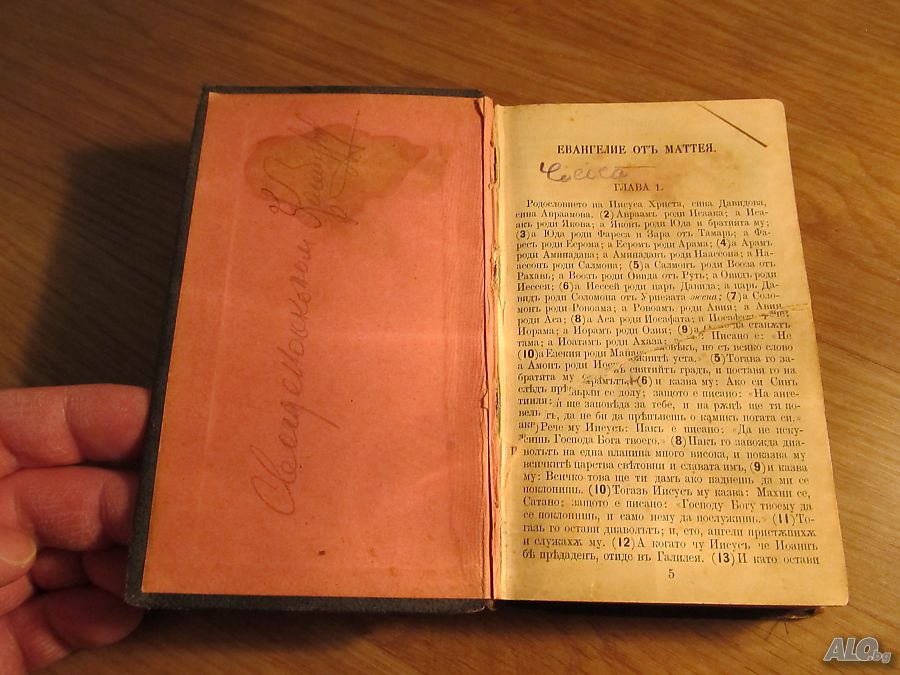 ЕВАНГЕЛИЕ ОТЪ МАТТЕЯ.
ГЛАВА 1.
Родословието на Иисуса Христа, сина Давидова,
сина Авраамова. (2) Авраамъ роди Исаака; а Иса-
акъ роди Якова; а Яковъ роди Юда и братията му;
(3) а Юда роди Фареса и Зара отъ Тамарь; а Фа-
ресъ роди Есрома; а Есромъ роди Арама; (4) а Арамъ
роди Аминадава; а Аминадавъ роди Наассона; а На-
ассонъ роди Салмона; (5) а Салмонъ роди Вооза отъ
Рахавь; а Воозъ роди Овида отъ Руть; а Овидъ роди
Иессея; (6) а Иессей роди царь Давида; а царь Да-
видъ роди Соломона отъ Уриевата жена; (7) а Соло-
монъ роди Ровоама; а Ровоамъ роди Авия; а Авия
роди Аса; (8) а Аса роди Иосафата; а Иосафатъ
Иорама; а Иорамъ роди Озия; (9) а да станѫтъ
тама; а Иоатамъ роди Ахаза; Писано е: «Не
(10) а Езекия роди Мана вѣкъ, но съ всяко слово
а Амонъ роди Иос жиитѣ уста. (5) Тогава го за-
братята му въ святийтъ градъ, и постави го на
слѣдъ (6) и казва му: Ако си Синъ
върли се долу; защото е писано: «На анге-
ще заповѣда за тебе, и на рѫцѣ ще тя по-
тъ, да не би да прѣпънешь о камикъ ногата си.»
Рече му Иисусъ: Пакъ е писано: «Да не иску-
сишь Господа Бога твоего.» (8) Пакъ го завожда дия-
волътъ на една планина много висока, и показва му
всичкитѣ царства свѣтовни и славата имъ, (9) и казва
му: Всичко това ще ти дамъ ако паднешь да ми се
поклонишь. (10) Тогазь Иисусъ му казва: Махни се,
Сатано; защото е писано: «Господу Богу твоему да
се поклонишь, и само нему да послужишь.» (11) То-
газь го остави дияволътъ; и, ето, ангели пристѫпихѫ
и служахѫ му. (12) А когато чу Иисусъ че Иоаннъ
бѣ прѣдаденъ, отиде въ Галилея. (13) И като остави
5
ALO.bg